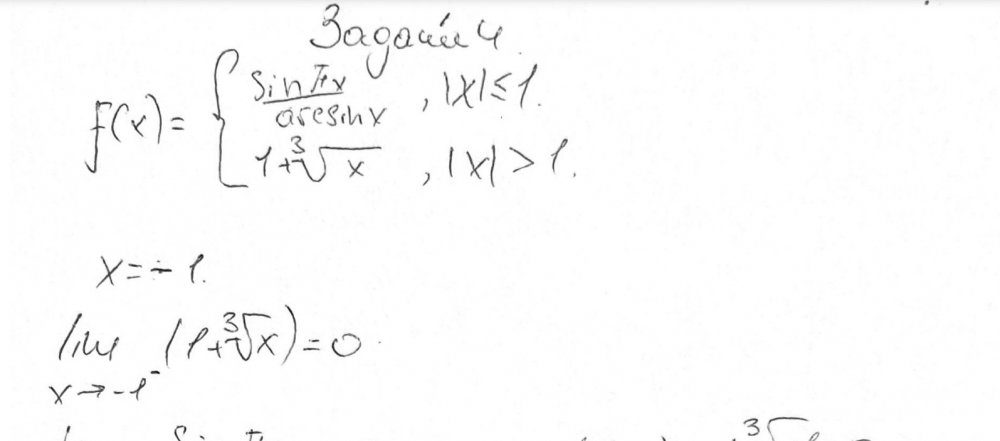 Задание 4.
f(x) = { sin πx / arcsin x , |x| ≤ 1.
1 + ∛x , |x| > 1.
x = -1.
lim (1 + ∛x) = 0.
x → -1⁻